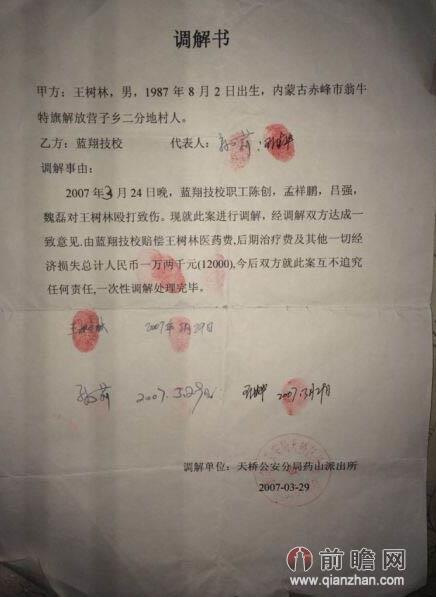 调解书
甲方：王树林，男，1987年8月2日出生，内蒙古赤峰市翁牛
特旗解放营子乡二分地村人。
乙方：蓝翔技校 代表人：
调解事由：
2007年3月24日晚，蓝翔技校职工陈创，孟祥鹏，吕强，
魏磊对王树林殴打致伤。现就此案进行调解，经调解双方达成一
致意见.由蓝翔技校赔偿王树林医药费,后期治疗费及其他一切经
济损失总计人民币一万两千元(12000),今后双方就此案互不追究
任何责任,一次性调解处理完毕。
王树林 2007年3月29日
2007.3.29日 2007.3月29日
调解单位：天桥公安分局药山派出所
2007-03-29
前瞻网
www.qianzhan.com